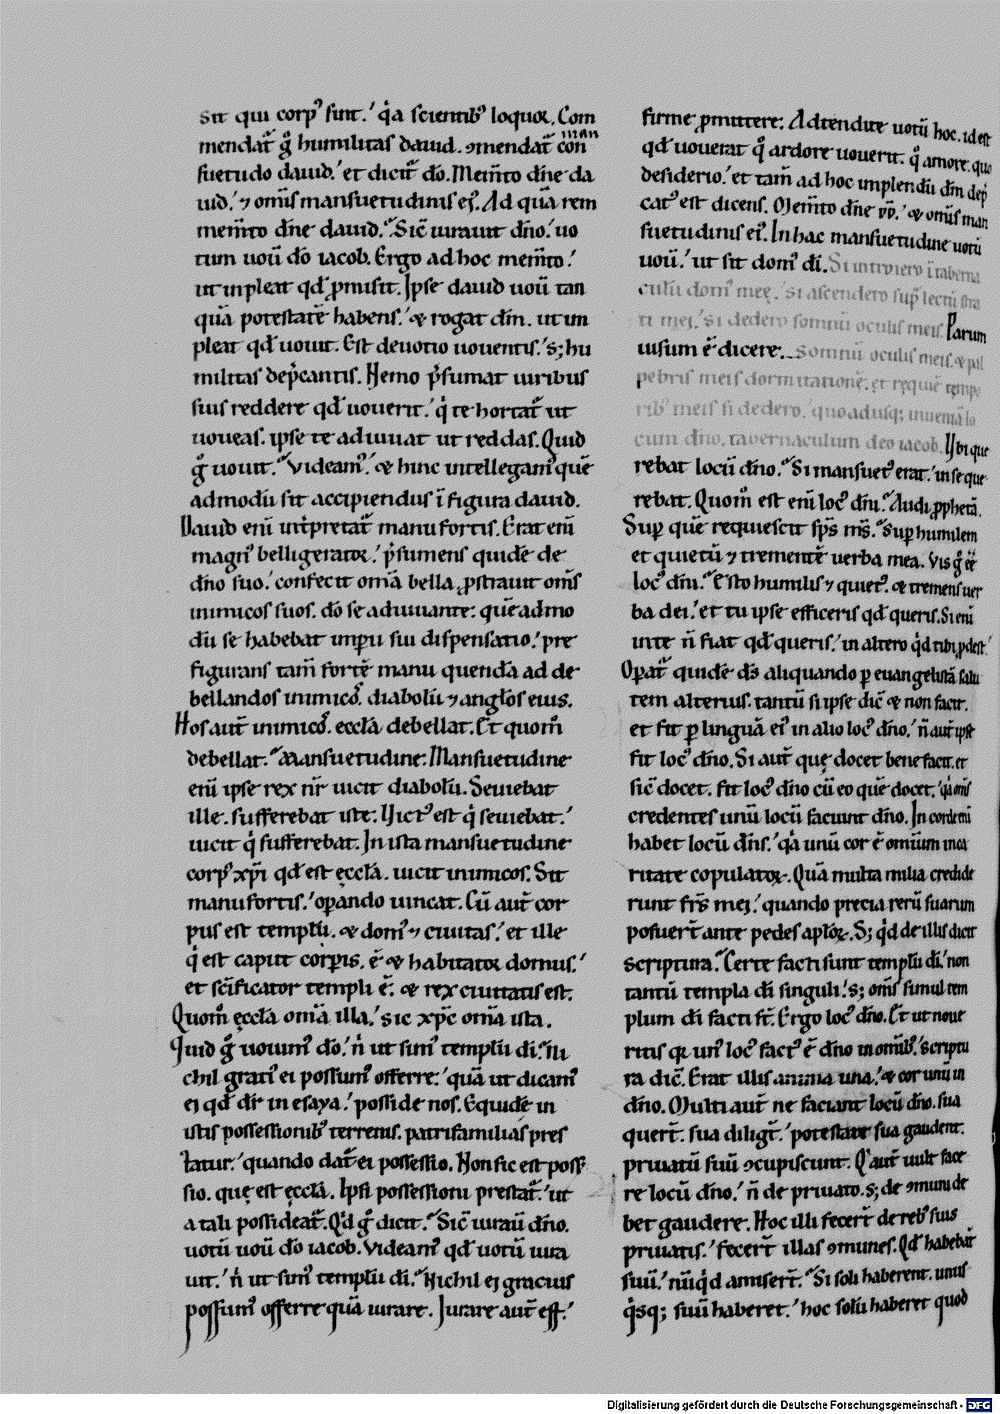 sit qui corpꝰ sunt.ʼ q̇a scientibꝰ loquoꝛ. Com
mendat᷑ g̊ humilitas dauid. ꝯmendat᷑ con
man
suetudo dauid.ʼ et dicit᷑ dō. Mem̄to dn̄e da
uid.ʼ ⁊ om̄is mansuetudinis eiꝰ. Ad quā rem
mem̄to dn̄e dauid. Sic̄ iurauit dn̄o.ʼ uo
tum uoū dō iacob. Ergo ad hoc mem̄to.ʼ
ut inpleat qd̄ ꝓmisit. Ipse dauid uoū tan
quā potestatē habens.ʼ & rogat dm̄. ut im
pleat qd̄ uouit. Est deuotio uouentis.ʼ s; hu
militas dep̄cantis. Nemo p̄sumat uiribus
suis reddere qd̄ uouerit.ʼ q̇ te hortat᷑ ut
uoueas. ipse te adiuuat ut reddas. Quid
g̊ uouit. Videamꝰ.ʼ & hinc intellegamꝰ quē
admodū sit accipiendus ī figura dauid.
Dauid eni īt̄pretat᷑ manu fortis. Erat eni
magnꝰ belligeratoꝛ.ʼ p̄sumens quidē de
dn̄o suo.ʼ confecit om̄a bella ꝓstrauit om̄s
inimicos suos. dō se adiuuante: quēadmo
dū se habebat imꝑii sui dispensatio.ʼ pre
figurans tam̄ fortē manu quendā ad de
bellandos inimicoꝰ. diabolū ⁊ angl̄os eius.
Hos aut̄ inimicoꝰ. eccl̄a debellat. Et quom̄
debellat. Mansuetudine. Mansuetudine
eni ipse rex nr̄ uicit diabolū. Seuiebat
ille. sufferebat iste. Victꝰ est q̇ seuiebat.ʼ
uicit q̇ sufferebat. In ista mansuetudine
corpꝰ xp̄i qd̄ est ęccl̄a. uicit inimicos. Sit
manu fortis.ʼ oꝑando uincat. Cū aut̄ cor
pus est templū. & domꝰ ⁊ ciuitas.ʼ et ille
q̇ est caput corꝑis. ē & habitatoꝛ domus.ʼ
et sc̄ificator templi ē. & rex ciuitatis est.
Quom̄ ęccl̄a om̄a illa.ʼ sic xp̄c om̄a ista.
Quid g̊ uouimꝰ dō.ʼ n̄ ut simꝰ templū di. Ni
chil gratiꝰ ei possumꝰ offerre.ʼ quā ut dicamꝰ
ei qd̄ dr̄ in esaya.ʼ posside nos. Equidē in
istis possessionibꝰ terrenis. patrifamilias pres
tatur.ʼ quando dat᷑ ei possessio. Non sic est poss
sio. quę est ęccl̄a. Ipsi possessioni prestat᷑.ʼ ut
a tali possideat᷑. Qd̄ g̊ dicit. Sic̄ iurauit dn̄o.
uotū uoū dō iacob. Videamꝰ qd̄ uotū iura
uit.ʼ n̄ ut simꝰ templū di. Nichil ei gracius
possumꝰ offerre quā iurare. Iurare aut̄ est.ʼ
firme ꝓmittere: Adtendite uotū hoc. id est
qd̄ uouerat q̊ ardore uouerit. q̊ amore. quo
desiderio.ʼ et tam̄ ad hoc implendū dm̄ dep̄
catꝰ est dicens. Mem̄to dn̄e dd̄.ʼ & om̄is man
suetudinis eiꝰ. In hac mansuetudine uotū
uoū.ʼ ut sit domꝰ di. Si introiero ī taberna
culū domꝰ meę.ʼ si ascendero suꝑ lectū stra
ti mei.ʼ si dedero somnū oculis meis. Parum
uisum ē dicere. somnū oculis meis. & pal
pebris meis dormitationē. et requiē tempo
ribꝰ meis si dedero.ʼ quoadusq; inueniā lo
cum dn̄o. tabernaculum deo iacob. Ubi que
rebat locū dn̄o. Si mansuetꝰ erat.ʼ in se que
rebat. Quom̄ est eni locꝰ dn̄i. Audi ꝓphetā.
Suꝑ quē requiescit sp̄s ms̄. Suꝑ humilem
et quietū ⁊ trementē uerba mea. Vis g̊ ēē
locꝰ dn̄i. Esto humilis ⁊ quietꝰ. & tremens uer
ba dei.ʼ et tu ipse efficeris qd̄ queris. Si eni
in te n̄ fiat qd̄ queris.ʼ in altero q̇d tibi ꝓdest.ʼ
Oꝑat᷑ quidē ds̄ aliquando ꝑ euangelistā salu
tem alterius. tantū si ipse dic̄ & non facit.
et fit ꝑ linguā eiꝰ in alio locꝰ dn̄o.ʼ n̄ aut̄ ipse
fit locꝰ dn̄o. Si aut̄ quę docet bene facit. et
sic̄ docet. fit locꝰ dn̄o cū eo quē docet.ʼ q̇a om̄s
credentes unū locū faciunt dn̄o. In corde eni
habet locū dn̄s.ʼ q̇a unū cor ē omnium in ca
ritate copulatoꝝ. Quā multa milia credide
runt frs̄ mei.ʼ quando precia rerū suarum
posuer̄t ante pedes apl̄oꝝ. S; q̇d de illis dicit
scriptura. Certe facti sunt templū di.ʼ non
tantū templa di singuli.ʼ s; om̄s simul tem
plum di facti st̄. Ergo locꝰ dn̄o. Et ut noue
ritis qꝛ unꝰ locꝰ factꝰ ē dn̄o in om̄ibꝰ.ʼ scriptu
ra dic̄. Erat illis anima una.ʼ & cor unū in
dn̄o. Multi aut̄ ne faciant locū dn̄o. sua
quer̄t. sua diligt̄. potestate sua gaudent.
priuatū suū ꝯcupiscunt. Q̇ aut̄ uult face
re locū dn̄o.ʼ n̄ de priuato. s; de ꝯmuni de
bet gaudere. Hoc illi fecer̄t de rebꝰ suis
priuatis.ʼ fecer̄t illas ꝯmunes. Qd̄ habebāt
suū.ʼ nūq̇d amiser̄t. Si soli haberent. unus
q̇sq; suū haberet.ʼ hoc solū haberet quod
Digitalisierung gefördert durch die Deutsche Forschungsgemeinschaft - DFG